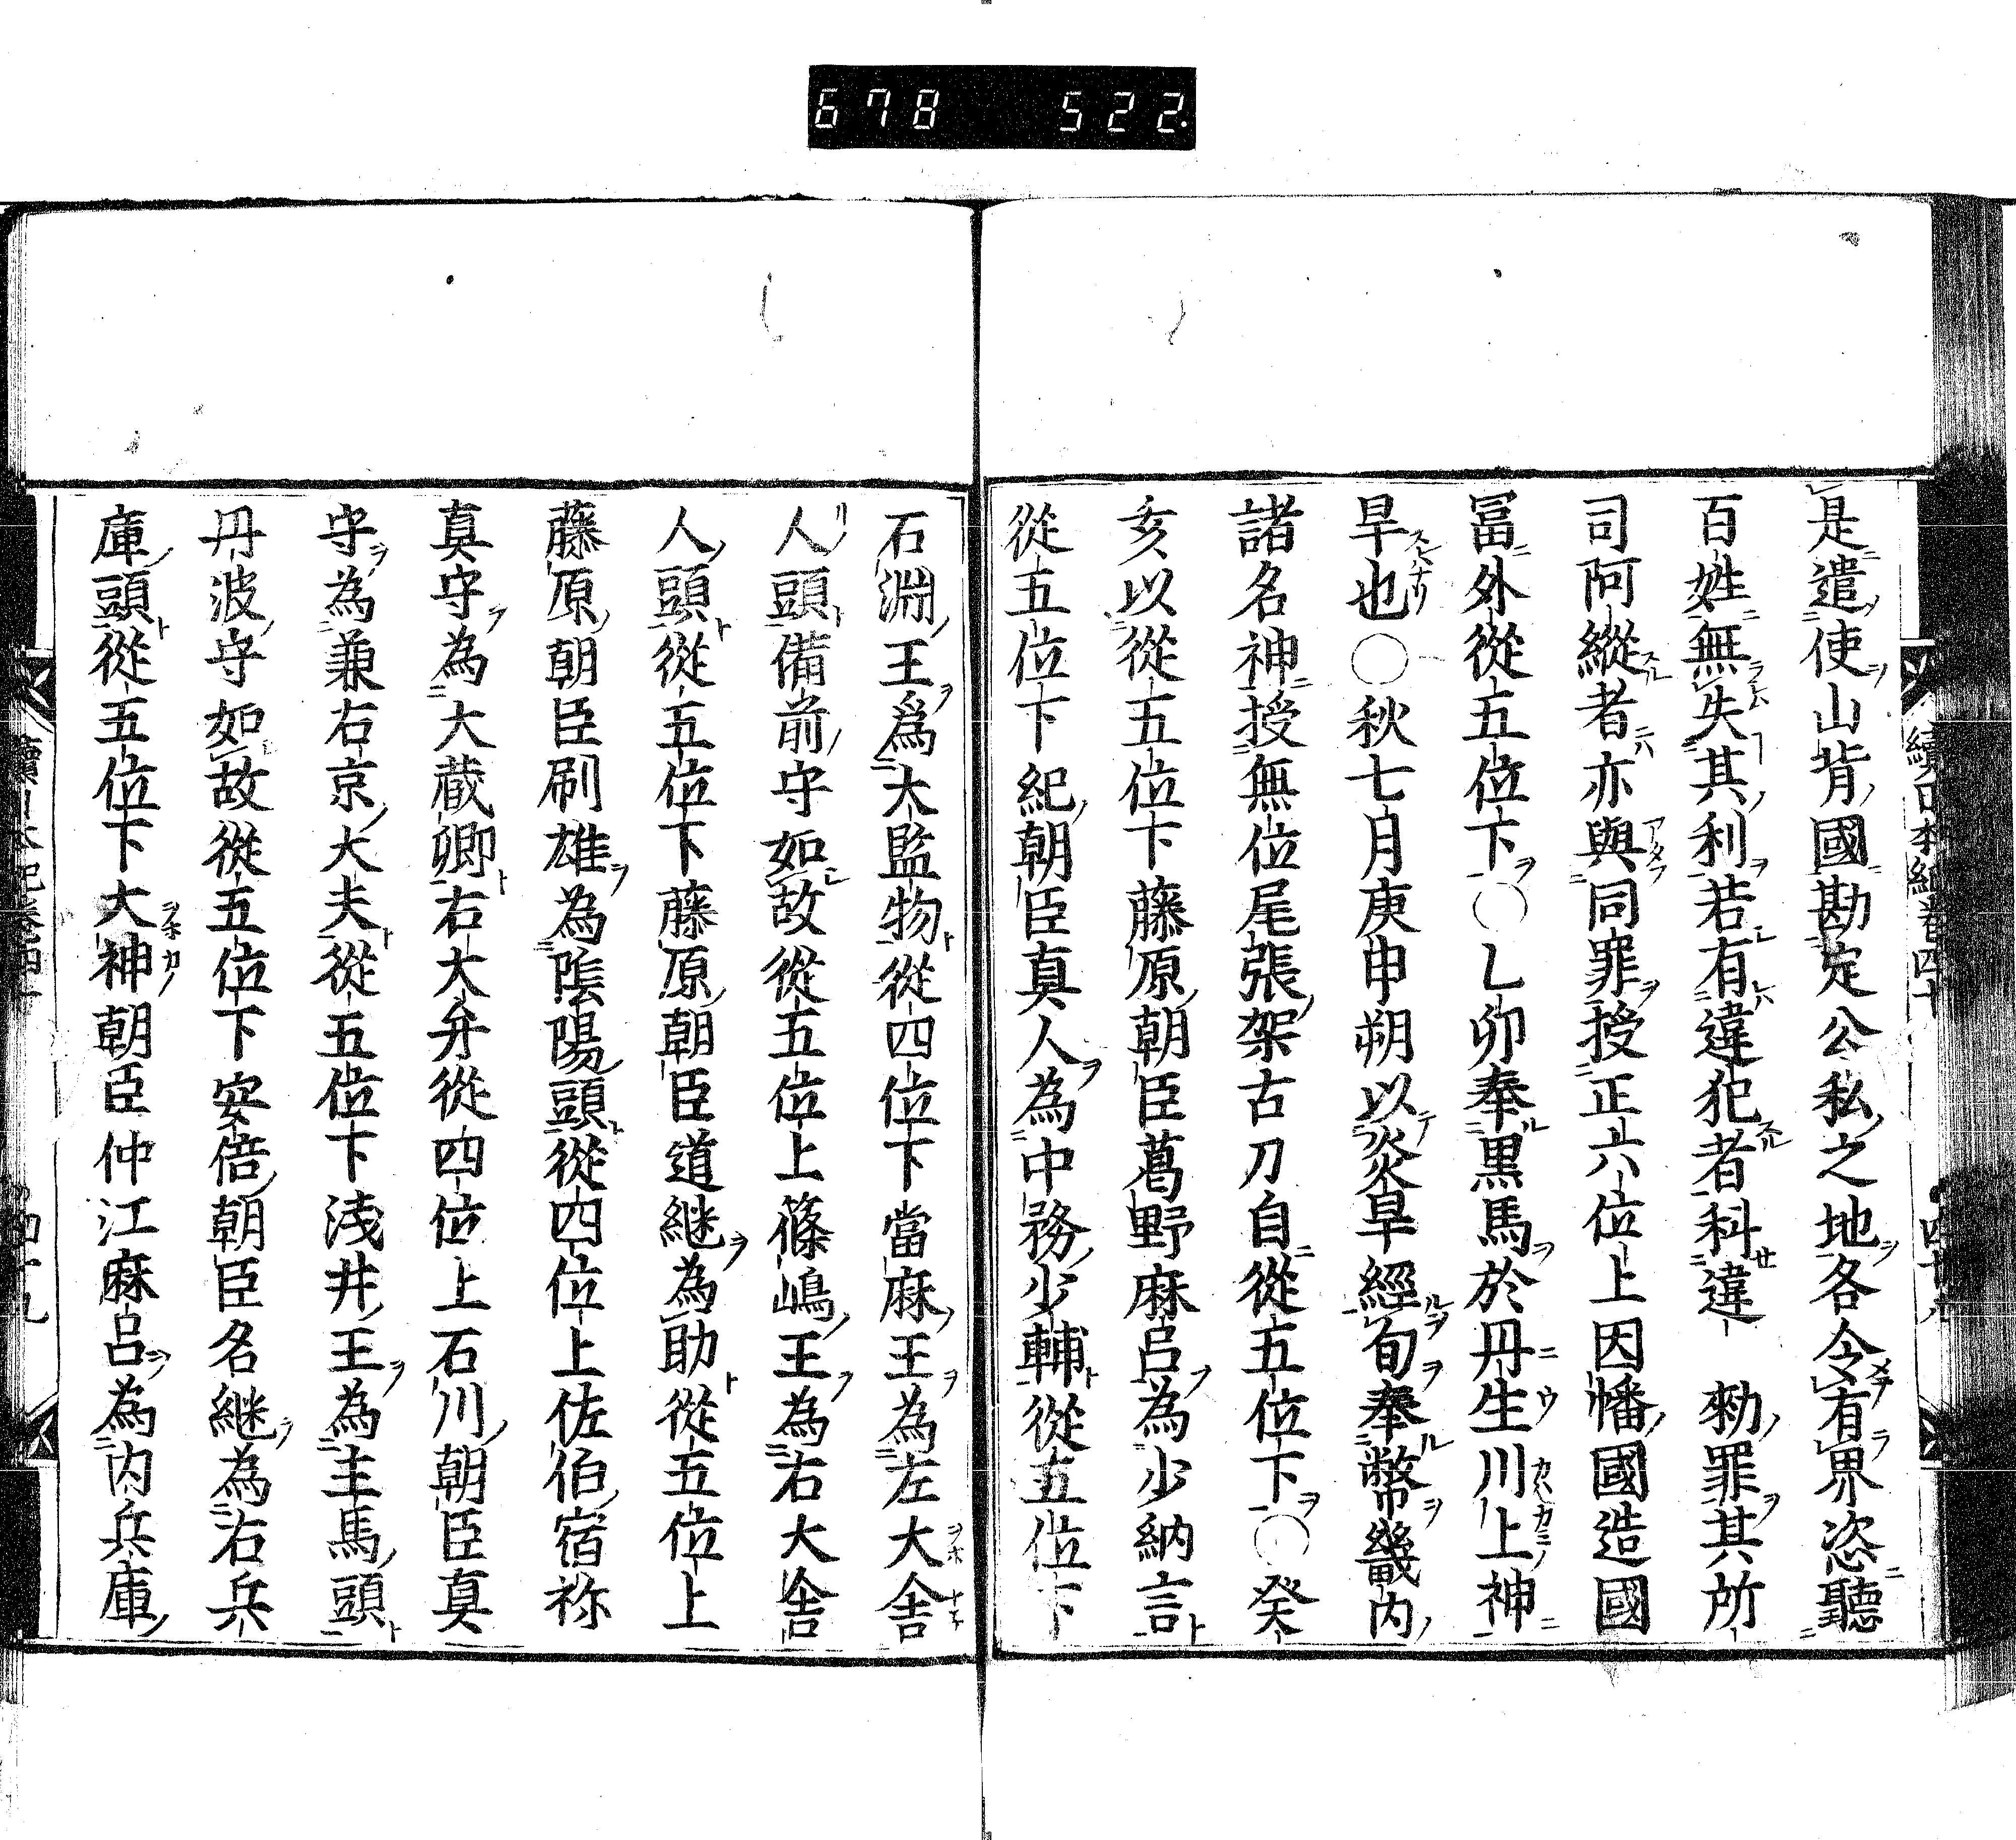 678 522
是遣使山背國勘定公私之地各令有界恣聽
百姓無失其利若有違犯者科違 勅罪其所
司阿縱者亦與同罪授正六位上因幡國造國
冨外從五位下○乙卯奉黒馬於丹生川上神
旱也○秋七月庚申朔以炎旱經旬奉幣畿内
諸名神授無位尾張架古刀自從五位下○癸
亥以從五位下藤原朝臣葛野麻呂為少納言
從五位下紀朝臣真人為中務少輔從五位下
石淵王爲大監物從四位下當麻王為左大舎
人頭備前守如故從五位上篠嶋王為右大舎
人頭從五位下藤原朝臣道継為助從五位上
藤原朝臣刷雄為陰陽頭從四位上佐伯宿祢
真守為大蔵卿右大弁從四位上石川朝臣真
守為兼右京大夫從五位下浅井王為主馬頭
丹波守如故從五位下安倍朝臣名継為右兵
庫頭從五位下大神朝臣仲江麻呂為内兵庫